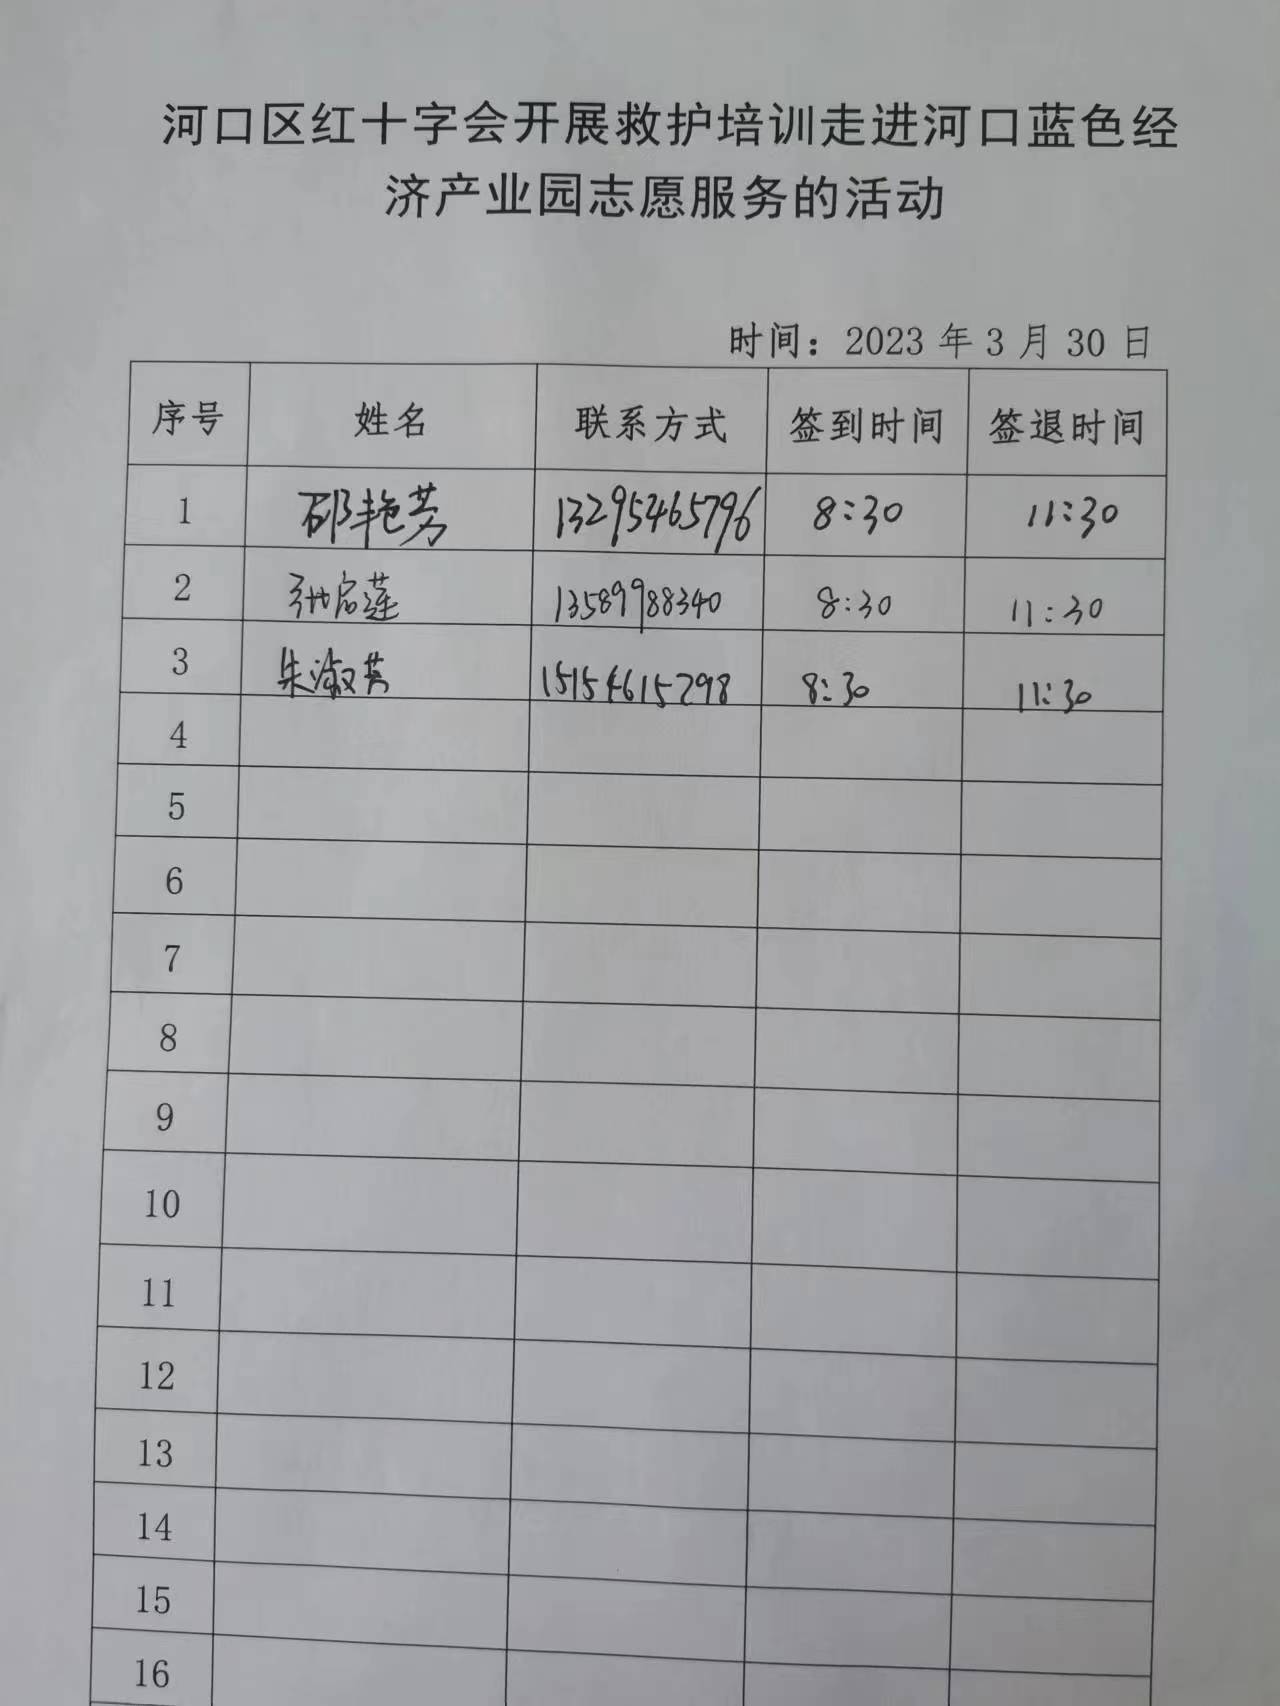 河口区红十字会开展救护培训走进河口蓝色经
济产业园志愿服务的活动
时间：2023 年 3 月 30 日
序号 姓名 联系方式 签到时间 签退时间
1 邵艳芳 13295465796 8:30 11:30
2 13589988340 8:30 11:30
3 朱淑英 15154615298 8:30 11:30
4
5
6
7
8
9
10
11
12
13
14
15
16